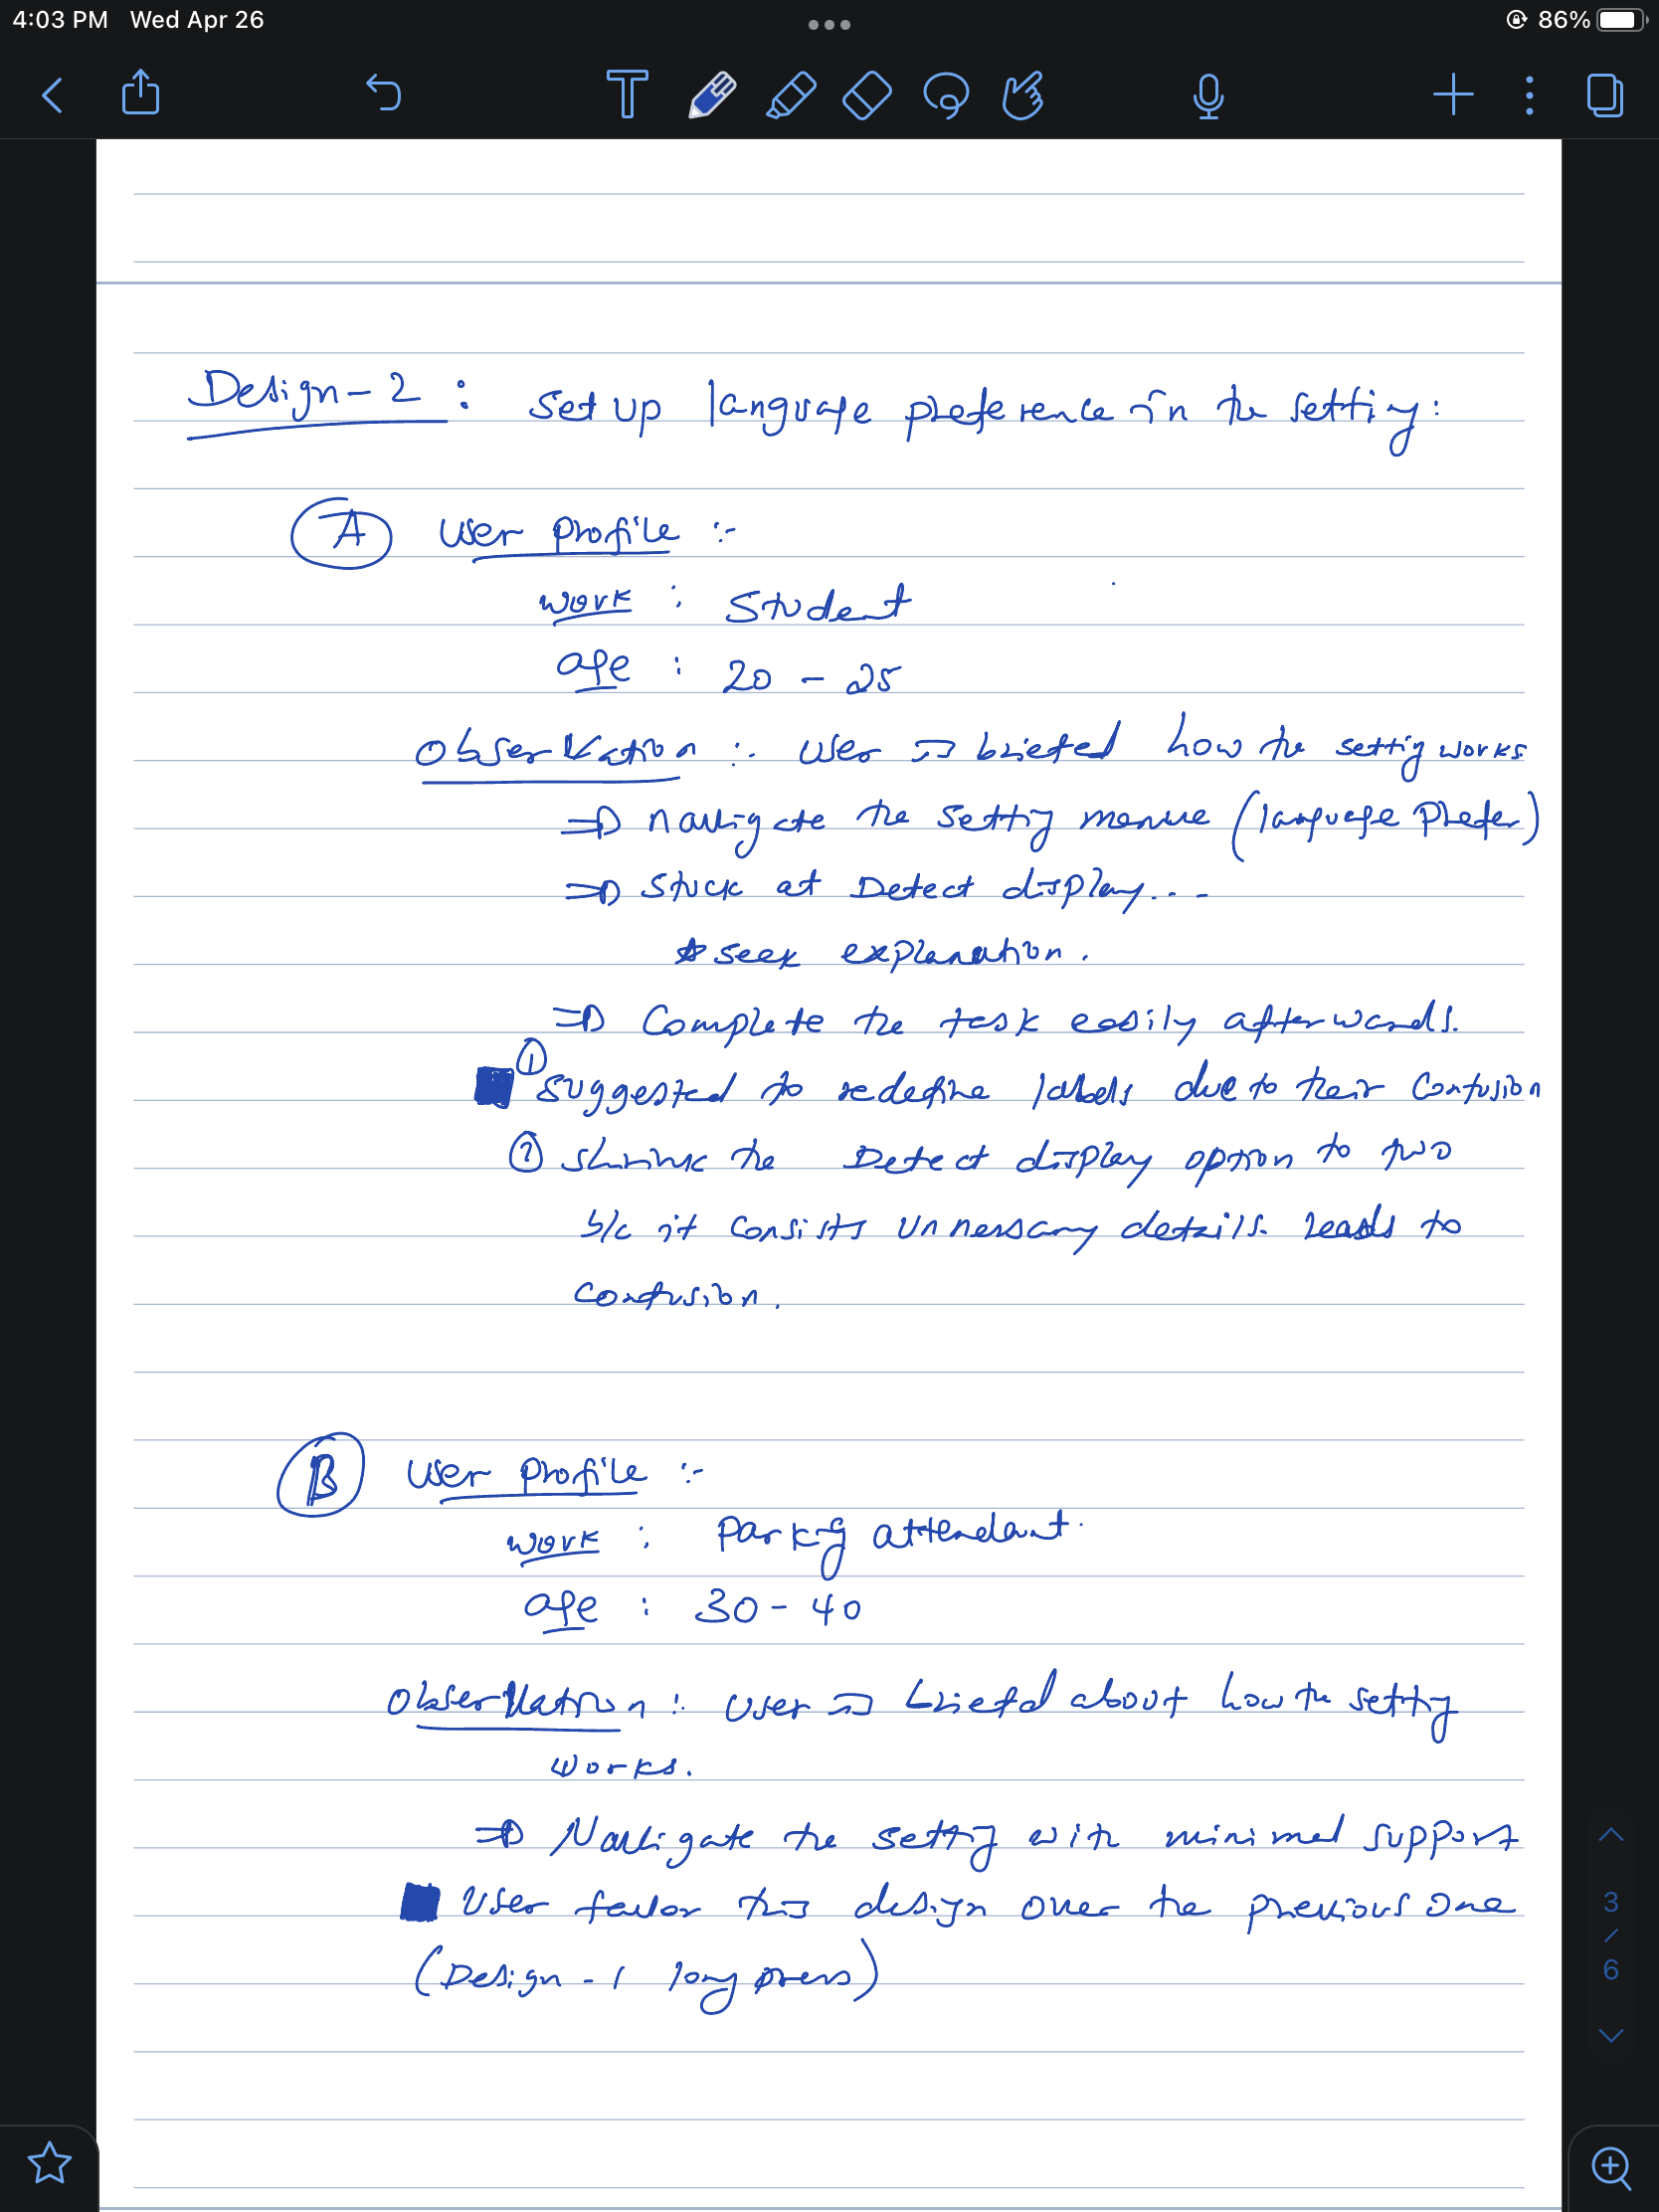 4:03 PM Wed Apr 26
86%
Design-2 : Set up language preference in the setting:
A User Profile :-
work : Student
age : 20 - 25
Observation :. User is briefed how the setting works.
⇒ navigate the setting menue (language Prefer)
⇒ Stuck at Detect display...
* seek explanation.
⇒ Complete the task easily afterwards.
① Suggested to redefine labels due to their Confusion
② shrink the Detect display option to two
b/c it consists unnessary details. leads to
confusion.
B User Profile :-
work : Parking attendant.
age : 30 - 40
Observation :. User is briefed about how the setting
works.
⇒ Navigate the setting with minimal support
User favor this design over the previous one
(Design - 1 long press)
3
/
6